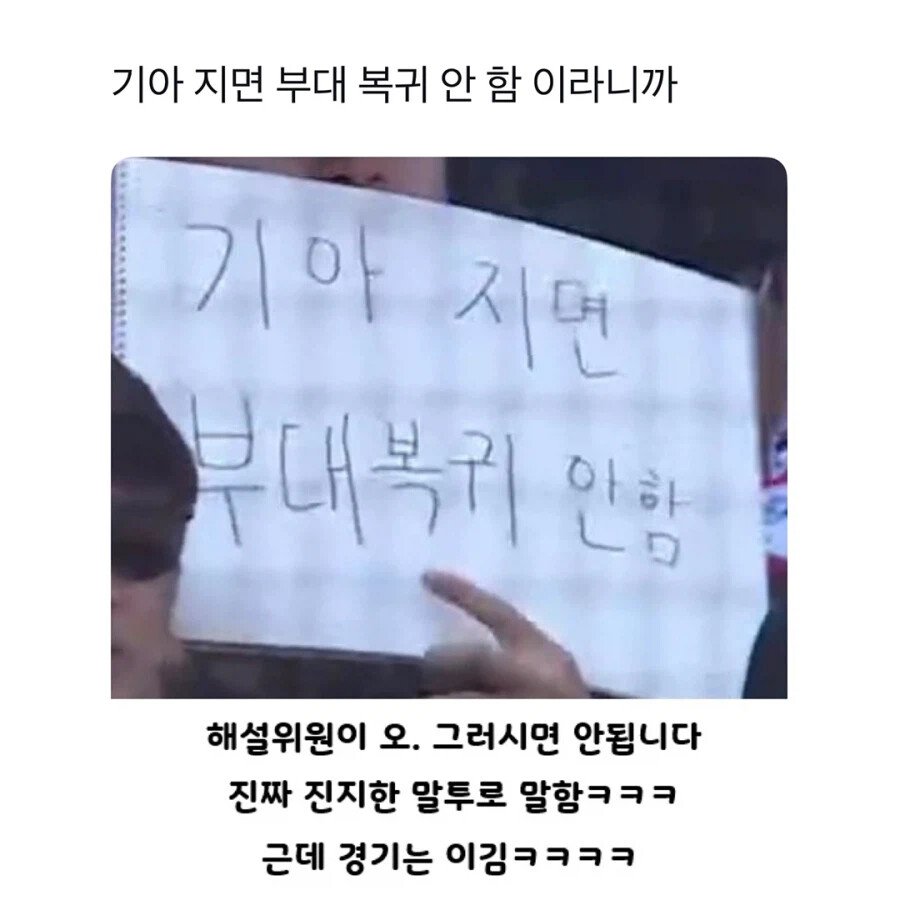 기아 지면 부대 복귀 안 함 이라니까
기아 지면
부대복귀 안함
해설위원이 오. 그러시면 안됩니다
진짜 진지한 말투로 말함ㅋㅋㅋ
근데 경기는 이김ㅋㅋㅋㅋ